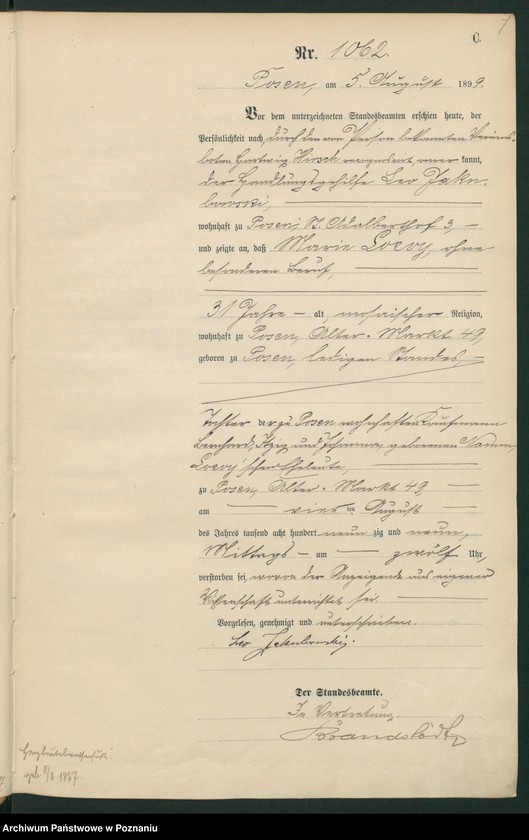 7
C.
Nr. 1062.
Posen, am 5. August 1899.
Vor dem unterzeichneten Standesbeamten erschien heute, der
Persönlichkeit nach, durch den von Person bekannten Vereins-
boten Hartwig Hirsch recognoscirt, kannt,
der Handlungsgehilfe Leo Jaku-
bowski,
wohnhaft zu Posen, St. Adalberthof 3,
und zeigte an, daß Marie Loevy, ohne
besonderen Beruf,
31 Jahre alt, mosaischer Religion,
wohnhaft zu Posen, Alter Markt 49,
geboren zu Posen, ledigen Standes,
Tochter der zu Posen wohnhaften Kaufmann
Bernhard, Itzig und Johanna, geborenen
Loevy'schen Eheleute,
zu Posen, Alter Markt 49,
am vierten August
des Jahres tausend acht hundert neunzig und neun,
Mittags um zwölf Uhr,
verstorben sei, wovon der Anzeigende aus eigener
Wissenschaft unterrichtet sei.
Vorgelesen, genehmigt und unterschrieben.
Leo Jakubowski.
Der Standesbeamte.
In Vertretung
geb. 1867
Archiwum Państwowe w Poznaniu